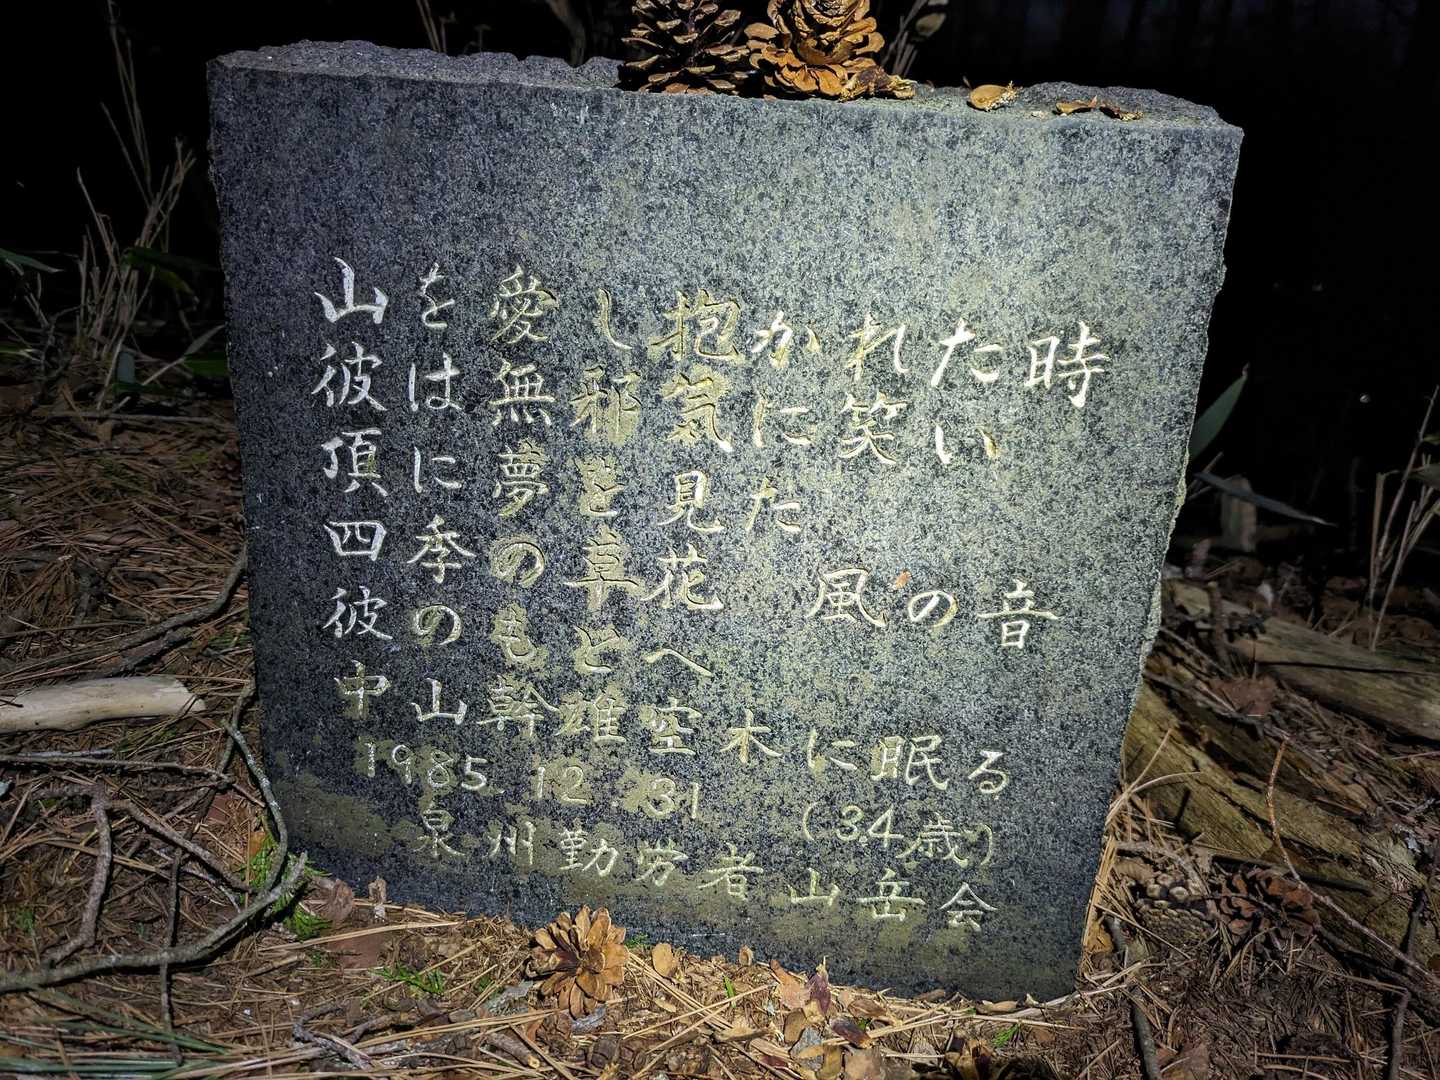 山を愛し抱かれた時
彼は無邪気に笑い
頂に夢を見た
四季の草花 風の音
彼のもとへ
中山幹雄空木に眠る
1985.12.31 (34歳)
泉州勤労者山岳会